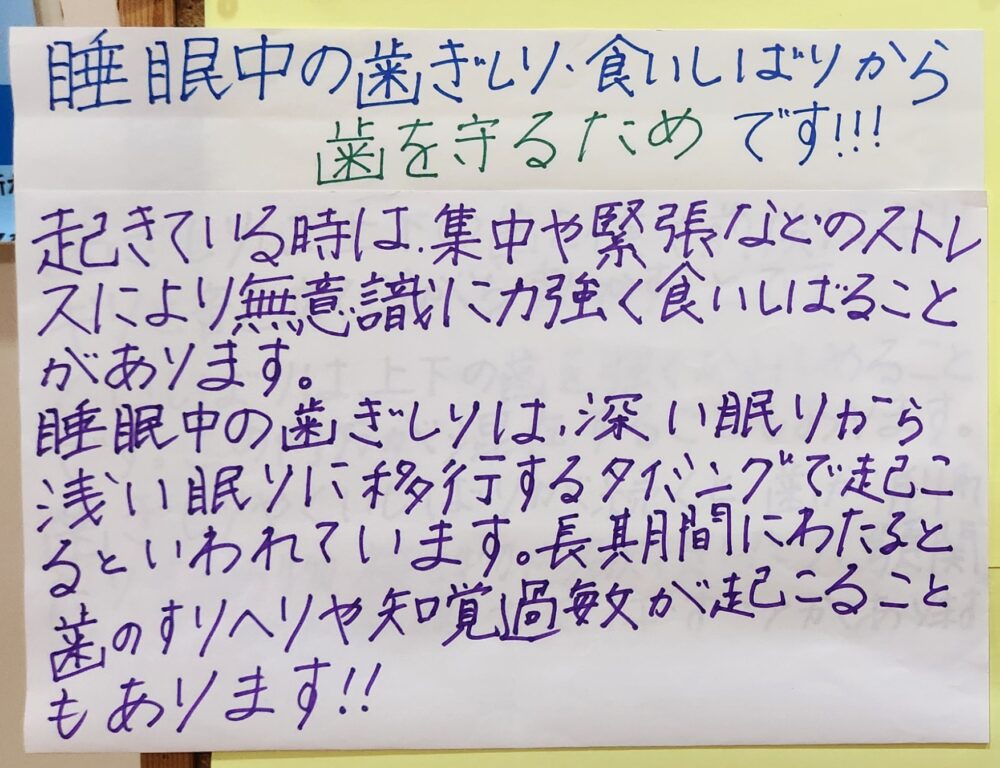 睡眠中の歯ぎしり・食いしばりから
歯を守るためです!!!
起きている時は、集中や緊張などのストレ
スにより無意識に力強く食いしばること
があります。
睡眠中の歯ぎしりは、深い眠りから
浅い眠りに移行するタイミングで起こ
るといわれています。長期間にわたると
歯のすりへりや知覚過敏が起こること
もあります!!